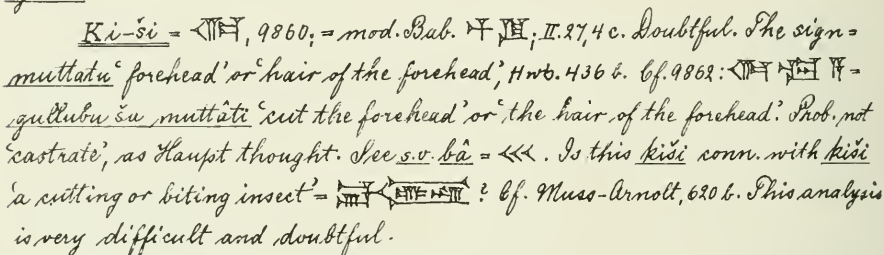 Ki-ši = 𒆠, 9860; = mod. Bab. ; II. 27, 4 c. Doubtful. The sign =
muttatu 'forehead' or 'hair of the forehead', Hwb. 436 b. Cf. 9862: =
gullubu ša muttâti 'cut the forehead' or 'the hair of the forehead'. Prob. not
'castrate', as Haupt thought. See s.v. bâ = 𒌍. Is this kiši conn. with kiši
'a cutting or biting insect' = ? Cf. Muss-Arnolt, 620 b. This analysis
is very difficult and doubtful.